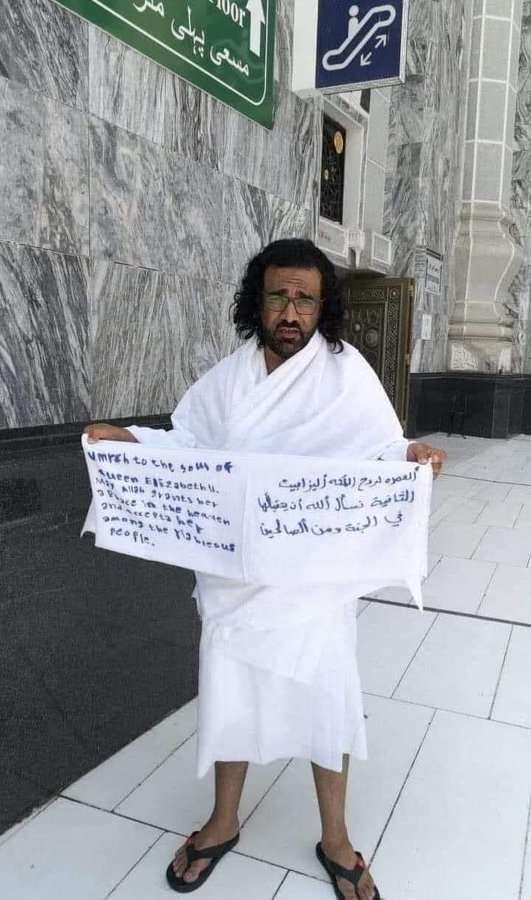 loor
مسعى پہلی منز
umrah to the soul of
Queen Elizabeth II.
May Allah grants her
a place in the heaven
and accepts her
among the righteous
people.
العمره لروح الملكه أليزابيث
الثانية نسأل الله أن يتقبلها
في الجنة ومن الصالحين